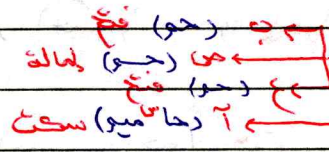 ب (حم) فتح
ص (حم) إمالة
ع (حم) فتح
آ (حا س ميم) سكت